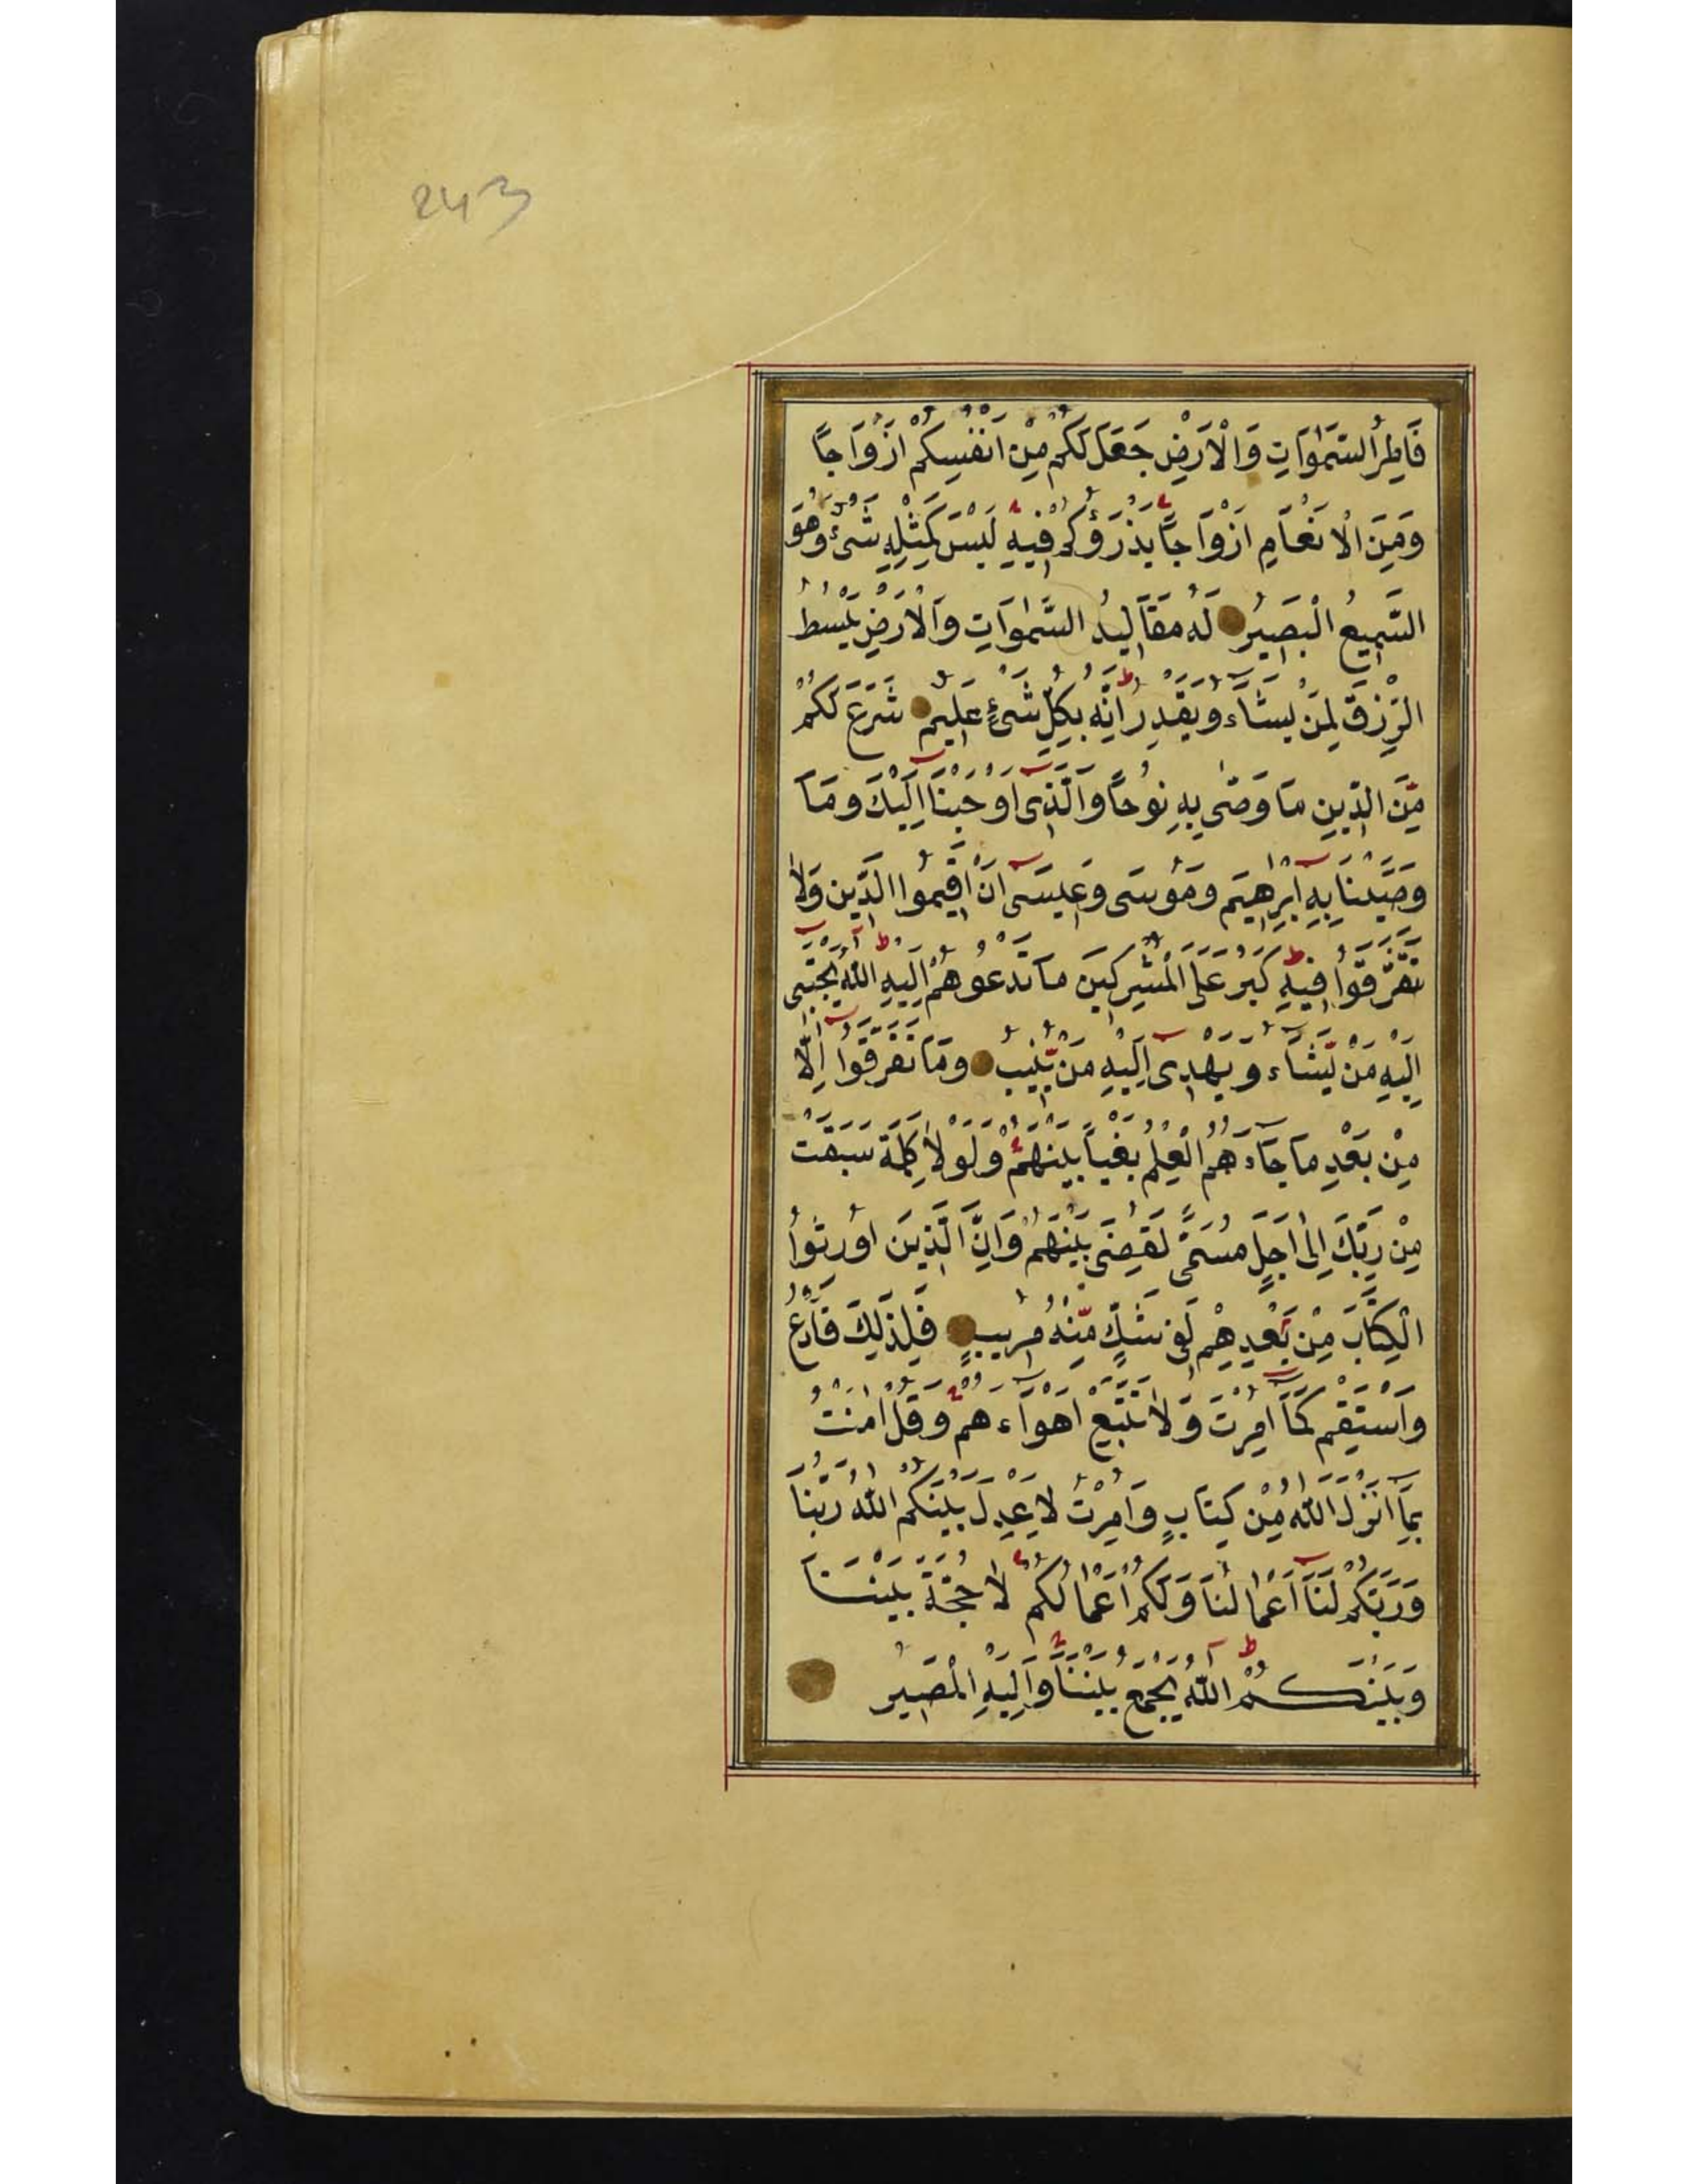 243
فَاطِرُ السَّمٰوَاتِ وَالْاَرْضِ جَعَلَ لَكُمْ مِنْ اَنْفُسِكُمْ اَزْوَاجًا
وَمِنَ الْاَنْعَامِ اَزْوَاجًا يَذْرَؤُكُمْ فِيهِ لَيْسَ كَمِثْلِهِ شَیْءٌ وَهُوَ
السَّمِيعُ الْبَصِيرُ لَهُ مَقَالِيدُ السَّمٰوَاتِ وَالْاَرْضِ يَبْسُطُ
الرِّزْقَ لِمَنْ يَشَاءُ وَيَقْدِرُ اِنَّهُ بِكُلِّ شَیْءٍ عَلِيمٌ شَرَعَ لَكُمْ
مِّنَ الدِّينِ مَا وَصّٰى بِهِ نُوحًا وَالَّذِى اَوْحَيْنَا اِلَيْكَ وَمَا
وَصَّيْنَا بِهِ اِبْرٰهِيمَ وَمُوسَى وَعِيسَى اَنْ اَقِيمُوا الدِّينَ وَلَا
تَتَفَرَّقُوا فِيهِ كَبُرَ عَلَى الْمُشْرِكِينَ مَا تَدْعُوهُمْ اِلَيْهِ اَللّٰهُ يَجْتَبِى
اِلَيْهِ مَنْ يَّشَاءُ وَيَهْدِى اِلَيْهِ مَنْ يُّنِيبُ وَمَا تَفَرَّقُوا اِلَّا
مِنْ بَعْدِ مَا جَاءَهُمُ الْعِلْمُ بَغْيًا بَيْنَهُمْ وَلَوْلَا كَلِمَةٌ سَبَقَتْ
مِنْ رَبِّكَ اِلٰى اَجَلٍ مُسَمًّى لَقُضِىَ بَيْنَهُمْ وَاِنَّ الَّذِينَ اُورِثُوا
الْكِتَابَ مِنْ بَعْدِهِمْ لَفِى شَكٍّ مِّنْهُ مُرِيبٍ فَلِذٰلِكَ فَادْعُ
وَاسْتَقِمْ كَمَا اُمِرْتَ وَلَا تَتَّبِعْ اَهْوَاءَهُمْ وَقُلْ اٰمَنْتُ
بِمَا اَنْزَلَ اللّٰهُ مِنْ كِتَابٍ وَاُمِرْتُ لِاَعْدِلَ بَيْنَكُمْ اَللّٰهُ رَبُّنَا
وَرَبُّكُمْ لَنَا اَعْمَالُنَا وَلَكُمْ اَعْمَالُكُمْ لَا حُجَّةَ بَيْنَنَا
وَبَيْنَكُمْ اَللّٰهُ يَجْمَعُ بَيْنَنَا وَاِلَيْهِ الْمَصِيرُ